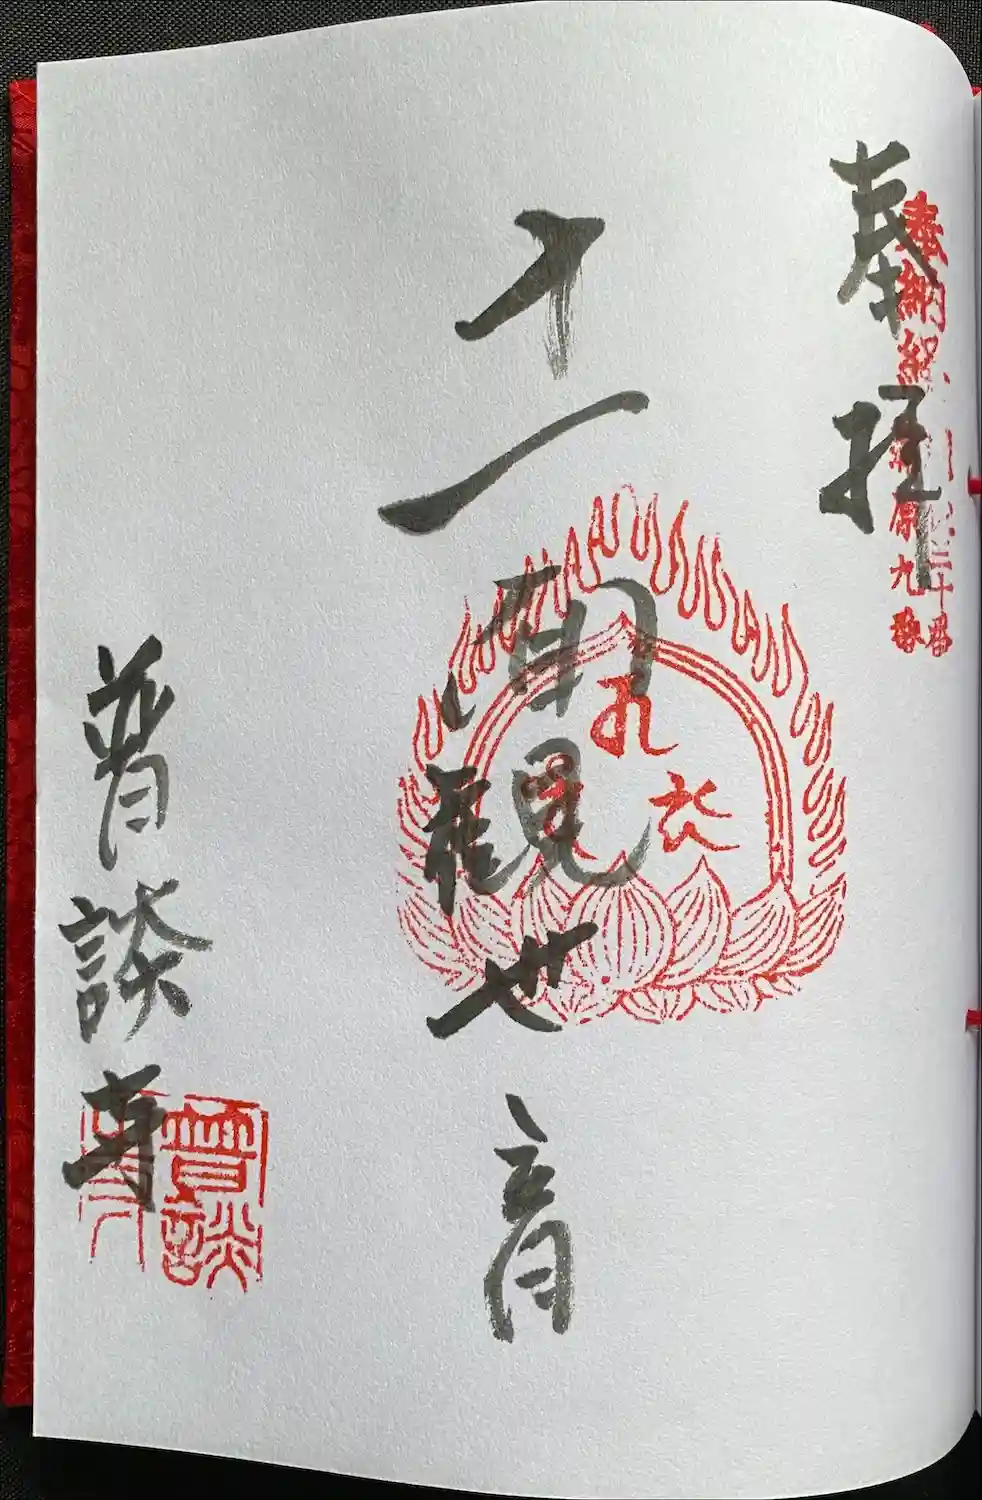 奉拝
奉納経
三十番
原九番
十一面観世音
普談寺
普談寺